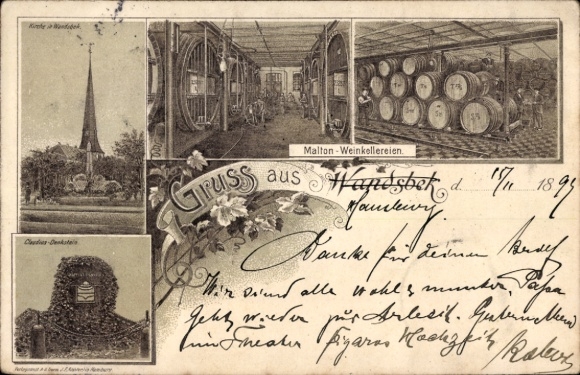 Kirche in Wandsbek.
Malton - Weinkellereien.
Gruss aus Wandsbek d. 15/11 1897
Hamburg
Claudius-Denkstein.
Danke für deinen Brief
Wir sind alle wohl & munter. Papa
geht wieder zur Arbeit. Gestern Abend
im Theater Figaros Hochzeit